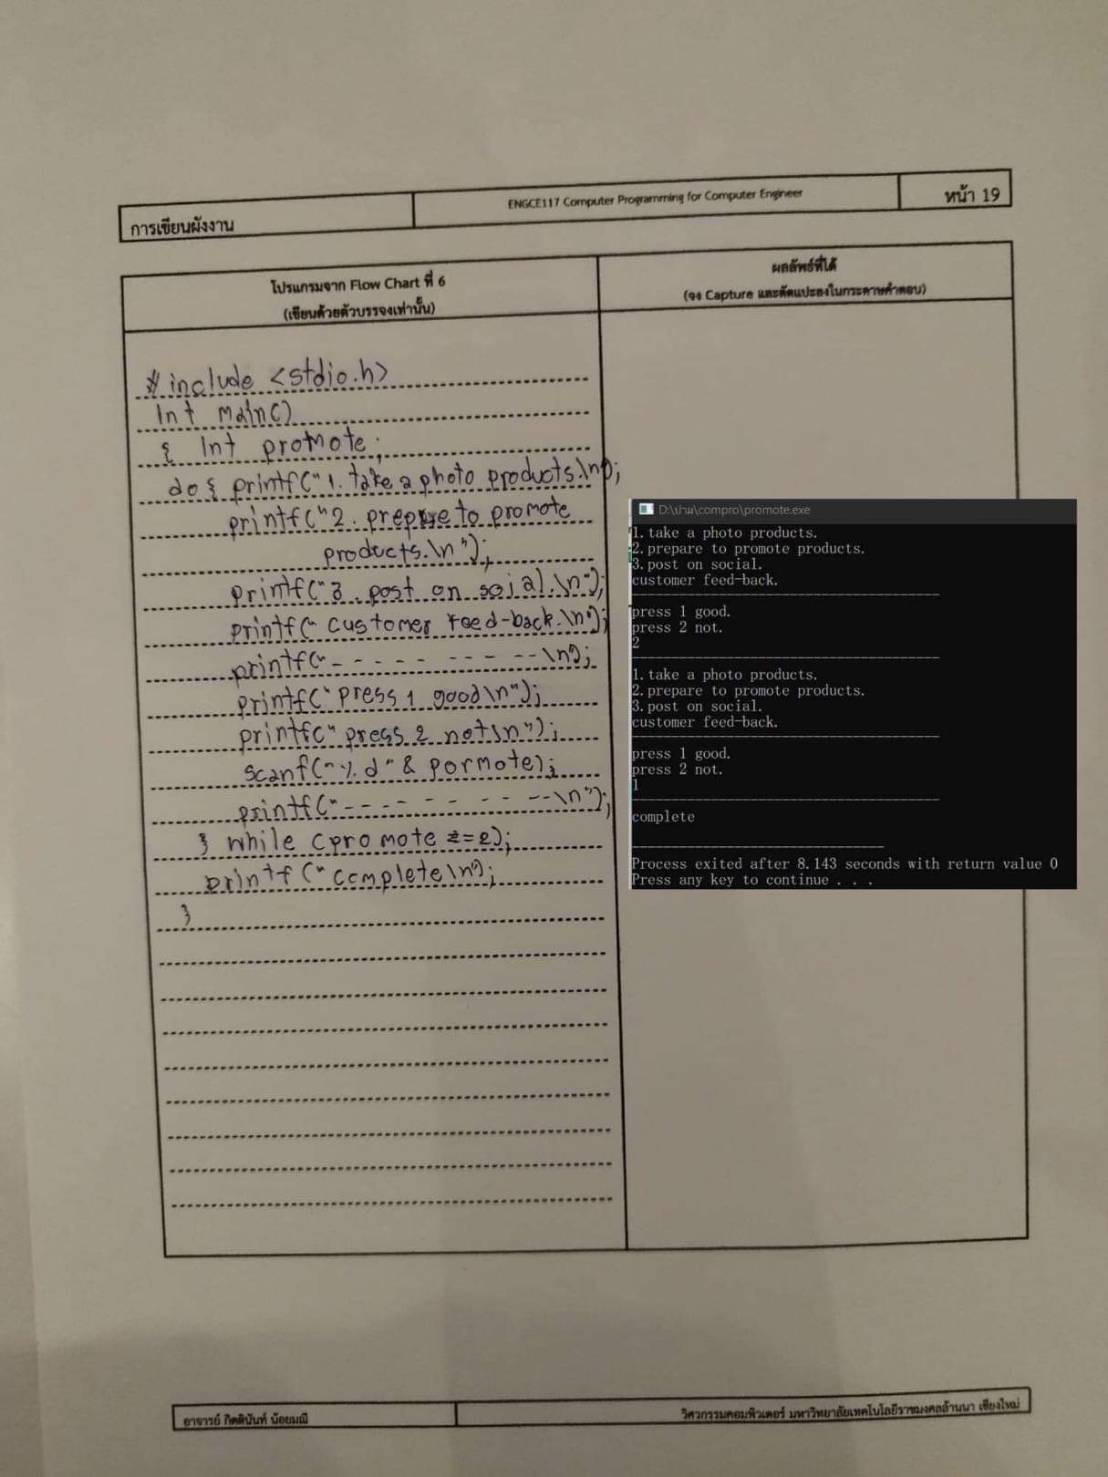 การเขียนผังงาน
ENGCE117 Computer Programming for Computer Engineer
หน้า 19
โปรแกรมจาก Flow Chart ที่ 6
(เขียนด้วยตัวบรรจงเท่านั้น)
ผลลัพธ์ที่ได้
(จง Capture และตัดแปะลงในกระดาษคำตอบ)
# include <stdio.h>
int main()
{ int promote;
do{ printf("1. take a photo products.\n");
printf("2. prepare to promote
products.\n");
printf("3. post on soial.\n");
printf(" customer feed-back.\n");
printf("- - - - - - - - - -\n");
printf("press 1 good\n");
printf("press 2 not\n");
scanf("%d" & pormote);
printf("- - - - - - - - - -\n");
} while (promote ==2);
printf("complete\n");
}
D:\ปาม\compro\promote.exe
1.take a photo products.
2.prepare to promote products.
3.post on social.
customer feed-back.
press 1 good.
press 2 not.
2
1.take a photo products.
2.prepare to promote products.
3.post on social.
customer feed-back.
press 1 good.
press 2 not.
1
complete
Process exited after 8.143 seconds with return value 0
Press any key to continue . . .
อาจารย์ กิตตินันท์ น้อยมณี
วิศวกรรมคอมพิวเตอร์ มหาวิทยาลัยเทคโนโลยีราชมงคลล้านนา เชียงใหม่